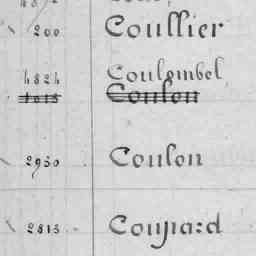 200 Coullier
4824 Coulombel
1015 Coulon
2950 Coulon
2815 Coupard